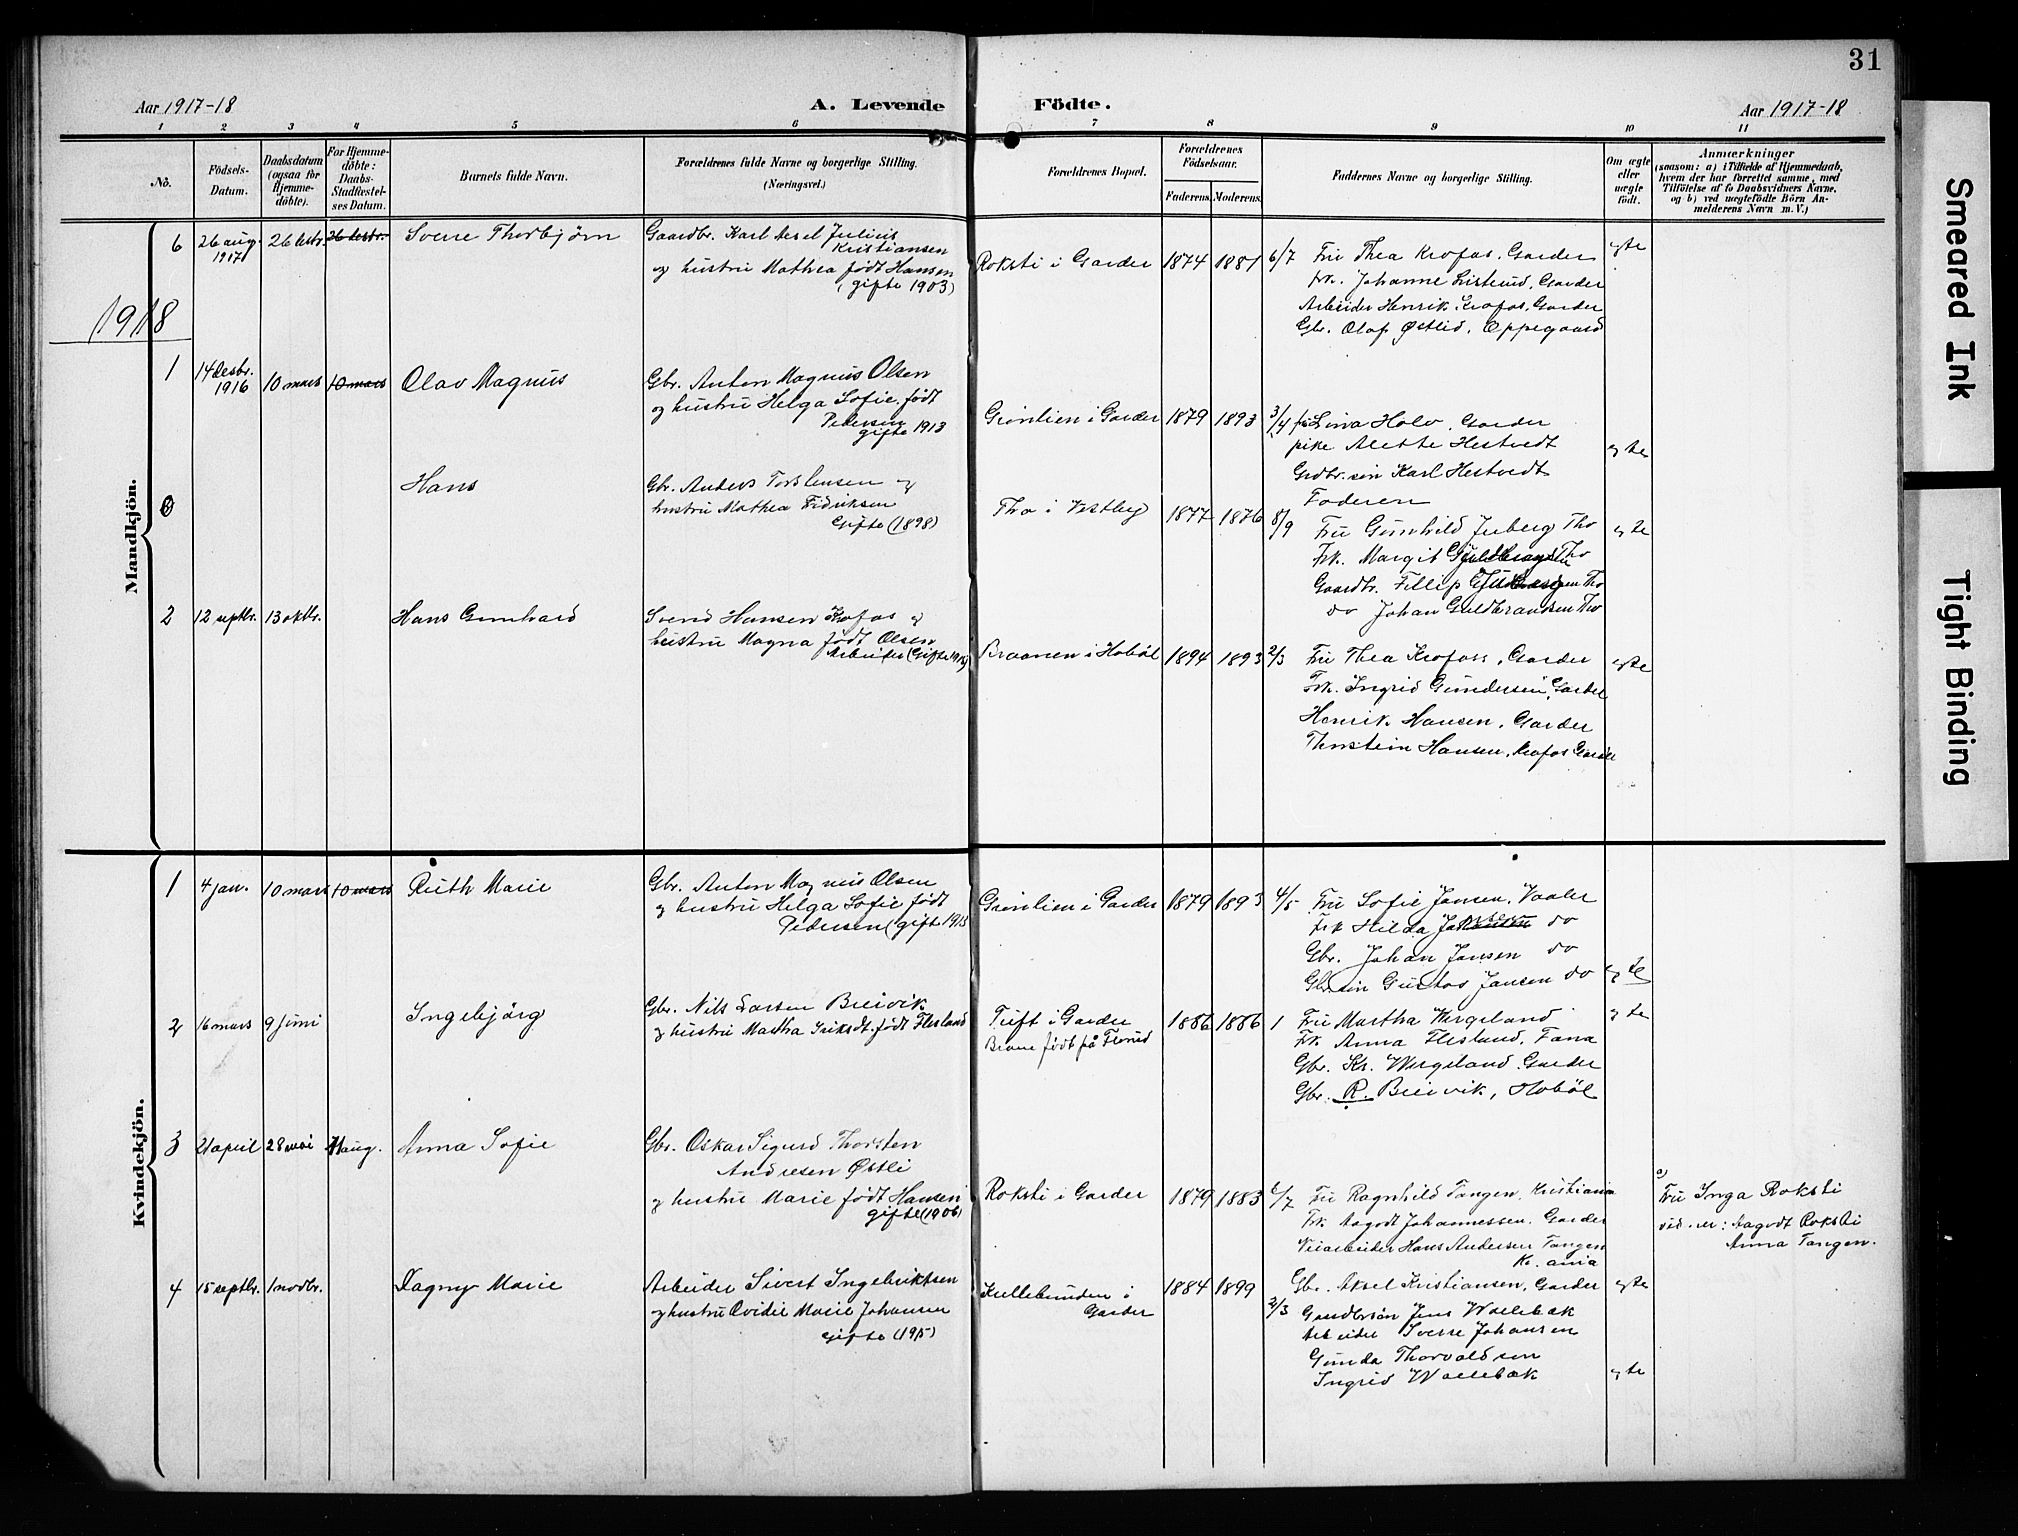 31
Aar 1917-18
A. Levende
Födte.
Aar 1917-18
1 2 3 4 5 6 7 8 9 10 11
No.
Födsels-
Datum.
Daabsdatum
(ogsaa for
Hjemme-
döbte).
For Hjemme-
döbte:
Daabs-
Stadfæstel-
ses Datum.
Barnets fulde Navn.
Forældrenes fulde Navne og borgerlige Stilling.
(Næringsvei.)
Forældrenes Bopæl.
Forældrenes
Födselsaar.
Faderens. Moderens.
Faddernes Navne og borgerlige Stilling.
Om ægte
eller
uægte
født.
Anmærkninger
(saasom: a) i Tilfælde af Hjemmedaab,
hvem der har forrettet samme, med
Tilföielse af to Daabsvidners Navne,
og b) ved uægtefödte Börn An-
melderens Navn m. V.)
Mandkjön.
6
26 aug.
1917
26 desbr.
26 desbr.
Sverre Thorbjørn
Gaardbr. Karl Aksel Julius
Kristiansen
og hustru Mathea født Hansen
(gifte 1903)
Roksti i Garder
1874
1881
6/7
Fru Thea Krofos, Garder
Frk. Johanne Listerud, Garder
Arbeider Henrik Krofos, Garder
Gbr. Olaf Østlid, Oppegaard
egte
1918
1
14 desbr.
1916
10 mars
10 mars
Olav Magnus
Gbr. Anton Magnus Olsen
og hustru Helga Sofie født
Pedersen
gifte 1913
Grønlien i Garder
1879
1893
3/4
fru Lina Holo, Garder
pike Alette Hestvedt
Grdbr.søn Karl Hestvedt
Faderen
egte
Hans
Gbr. Anders Torstensen og
hustru Mathea Fredriksen
Gifte (1898)
Tho i Vestby
1877
1876
8/9
Fru Gunhild Juberg Tho
Frk. Margit Guldbrandsen Tho
Gaardbr. Fillip Guldbrandsen Tho
do Johan Guldbrandsen Tho
egte
2
12 septbr.
13 oktbr.
Hans Gunhard
Svend Hansen Krofos og
hustru Magna født Olsen
Arbeider (Gifte 1918)
Braanen i Hobøl
1894
1893
2/3
Fru Thea Krofoss, Garder
Frk. Ingrid Gundersen, Garder
Henrik Hansen, Garder
Thorstein Hansen, Krofos Garder
egte
Kvindekjön.
1
4 jan.
10 mars
10 mars
Ruth Marie
Gbr. Anton Magnus Olsen
og hustru Helga Sofie født
Pedersen (gifte 1913
Grønlien i Garder
1879
1893
4/5
Fru Sofie Jansen, Vaaler
Frk Hilda Jansen do
Gbr. Johan Jansen do
Gbr.søn Gustav Jansen do
egte
2
16 mars
9 juni
Ingebjørg
Gbr. Nils Larsen Breivik
og hustru Martha Eriksdt. født Flesland
Tuft i Garder
Barnet født på Florud
1886
1886
1
Fru Martha Wergeland
Frk Anna Flesland, Fana
Gbr. Kr. Wergeland Garder
Gbr. R. Breivik, Hobøl
egte
3
21 april
28 mai
11 aug.
Anna Sofie
Gbr. Oskar Sigurd Thorsten
Andresen Østli
og hustru Marie født Hansen
gifte (1906)
Roksti i Garder
1879
1883
6/7
Fru Ragnhild Tangen, Kristiania
Frk. Aagodt Johannessen, Garder
Veiarbeider Hans Andersen Tangen
Kr.ania
a)
Fru Inga Roksti
vid.er: Aagodt Roksti
Anna Tangen.
4
15 septbr.
1 novbr.
Dagny Marie
Arbeider Sivert Ingebriktsen
og hustru Ovidie Marie Johansen
gifte (1915)
Kullebunden i
Garder
1884
1899
2/3
Gbr. Aksel Kristiansen, Garder
Gaardbrsøn Jens Wollebæk
Arbeider Sverre Johansen
Gunda Thorvaldsen
Ingrid Wollebæk
egte
egte
Smeared Ink
Tight Binding